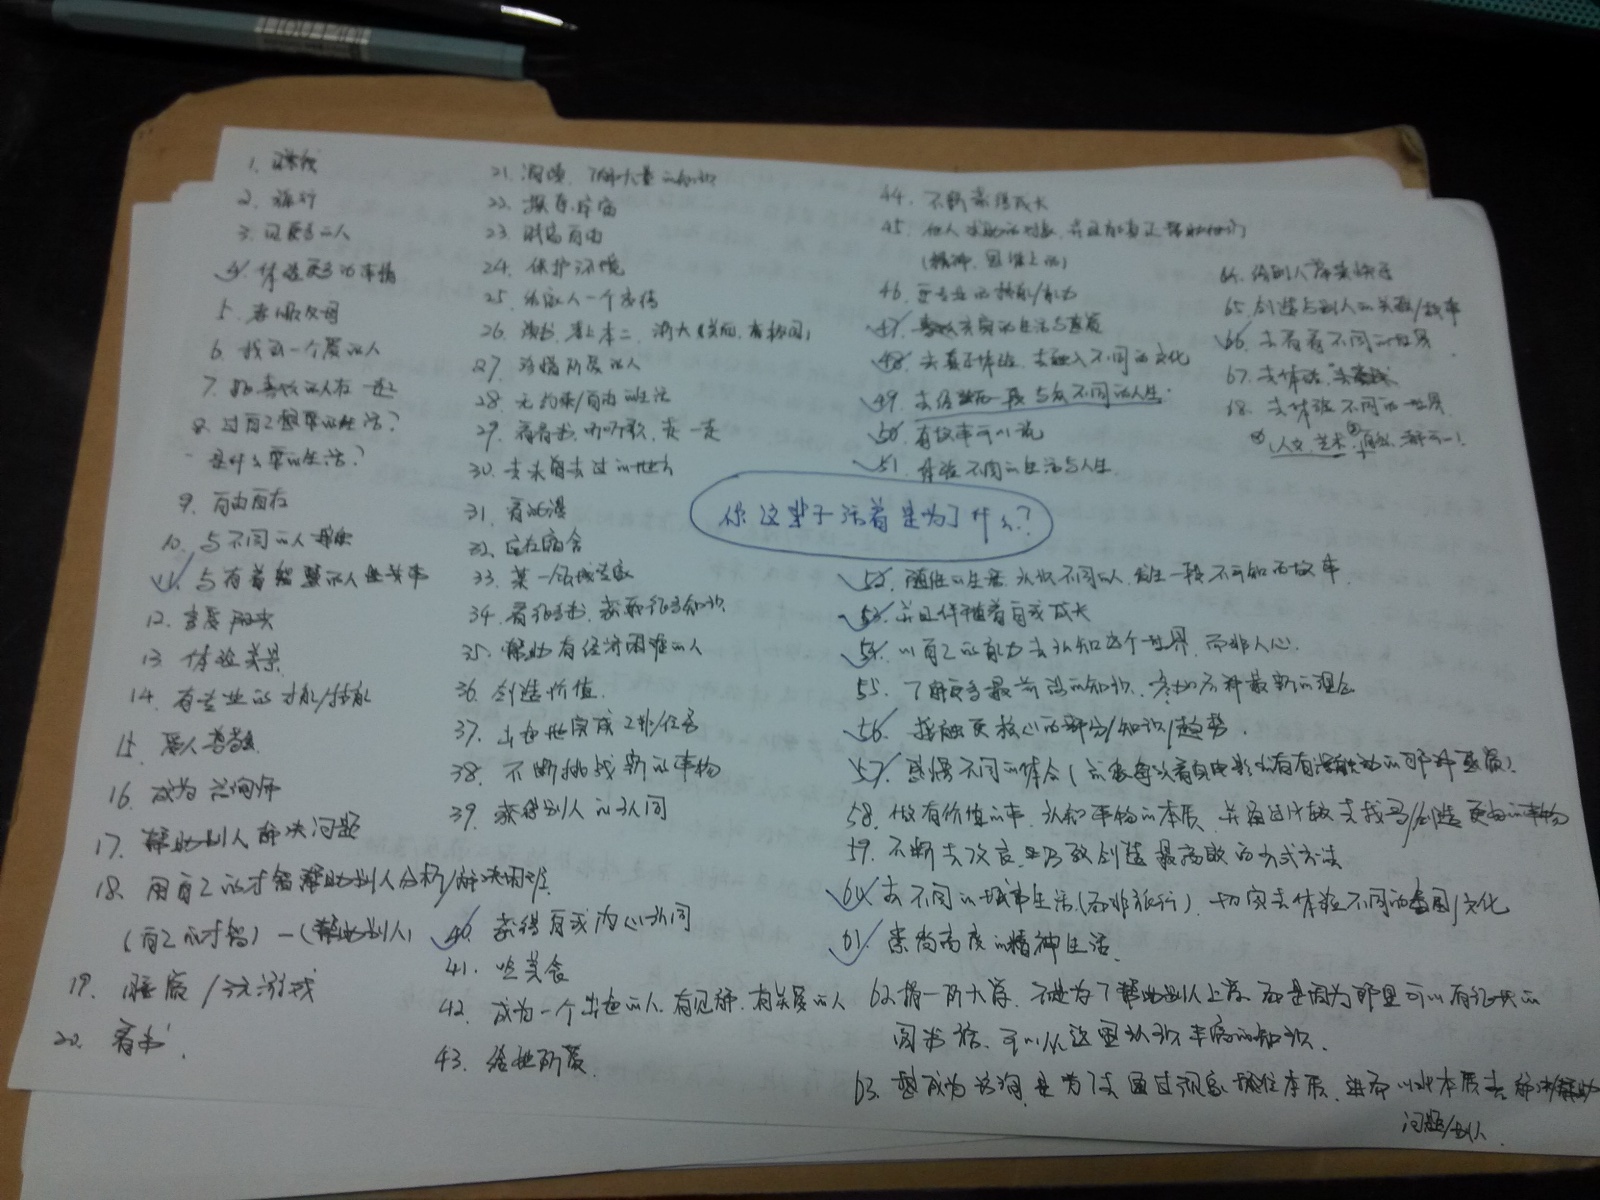 1. 赚钱
2. 旅行
3. 见更多的人
4. 体验更多的事情
5. 孝顺父母
6. 找到一个爱的人
7. 和喜欢的人在一起
8. 过自己想要的生活?
是什么要的生活?
9. 自由自在
10. 与不同的人
11. 与有着智慧的人共事
12.
13. 体验美景
14. 有专业的才能/技能
15. 受人尊敬
16. 成为咨询师
17. 帮助别人解决问题
18. 用自己的才智帮助别人分析/解决困难
(自己的才智)—(帮助别人)
19. 睡觉/玩游戏
20. 看书
21. 阅读、了解大量的知识
22. 探索宇宙
23. 财富自由
24. 保护环境
25. 给家人一个
26. 考上本二、浙大
27. 珍惜所爱的人
28. 无约束/自由的生活
29. 看看书、听听歌、走一走
30. 去未曾去过的地方
31. 看动漫
32. 宅在宿舍
33. 某一领域专家
34. 看很多书、获取很多知识
35. 帮助有经济困难的人
36. 创造价值
37. 出色地完成工作/任务
38. 不断挑战新的事物
39. 获得别人的认同
40. 获得自我内心认同
41. 吃美食
42. 成为一个出色的人、有见解、有关爱的人
43. 给她所爱
44. 不断获得成长
45. 他人求助的对象、并且能真正帮助他们
(精神、思维上的)
46. 更专业的技能/能力
47. 去真实的生活与
48. 去真正体验、去融入不同的文化
49. 去经历一段与众不同的人生
50. 有故事可以说
51. 体验不同的生活与人生
你这辈子活着是为了什么?
52. 随性的生活、认识不同的人、发生一段不可知的故事
53. 并且伴随着自我成长
54. 以自己的能力去认知这个世界、而非人心
55. 了解更多最前沿的知识、最新的理念
56. 接触更核心的部分/知识/趋势
57. 感悟不同的体会
58. 做有价值的事、认知事物的本质、并通过比较去找寻/创造更好的事物
59. 不断去改良、以致创造最高效的方式方法
60. 去不同的城市生活(而非旅行)、切实去体验不同的/文化
61. 崇尚高度的精神生活
62. 捐一所大学、不是为了帮助别人上学、而是因为那里可以有很大的
图书馆、可以从这里认识丰富的知识
63. 想成为咨询、是为了去通过现象抓住本质、进而以此本质去解决/帮助
问题/别人
64. 给别人带来快乐
65. 创造与别人的关联/故事
66. 去看看不同的世界
67. 去体验
68. 去体验不同的世界
人文、艺术、